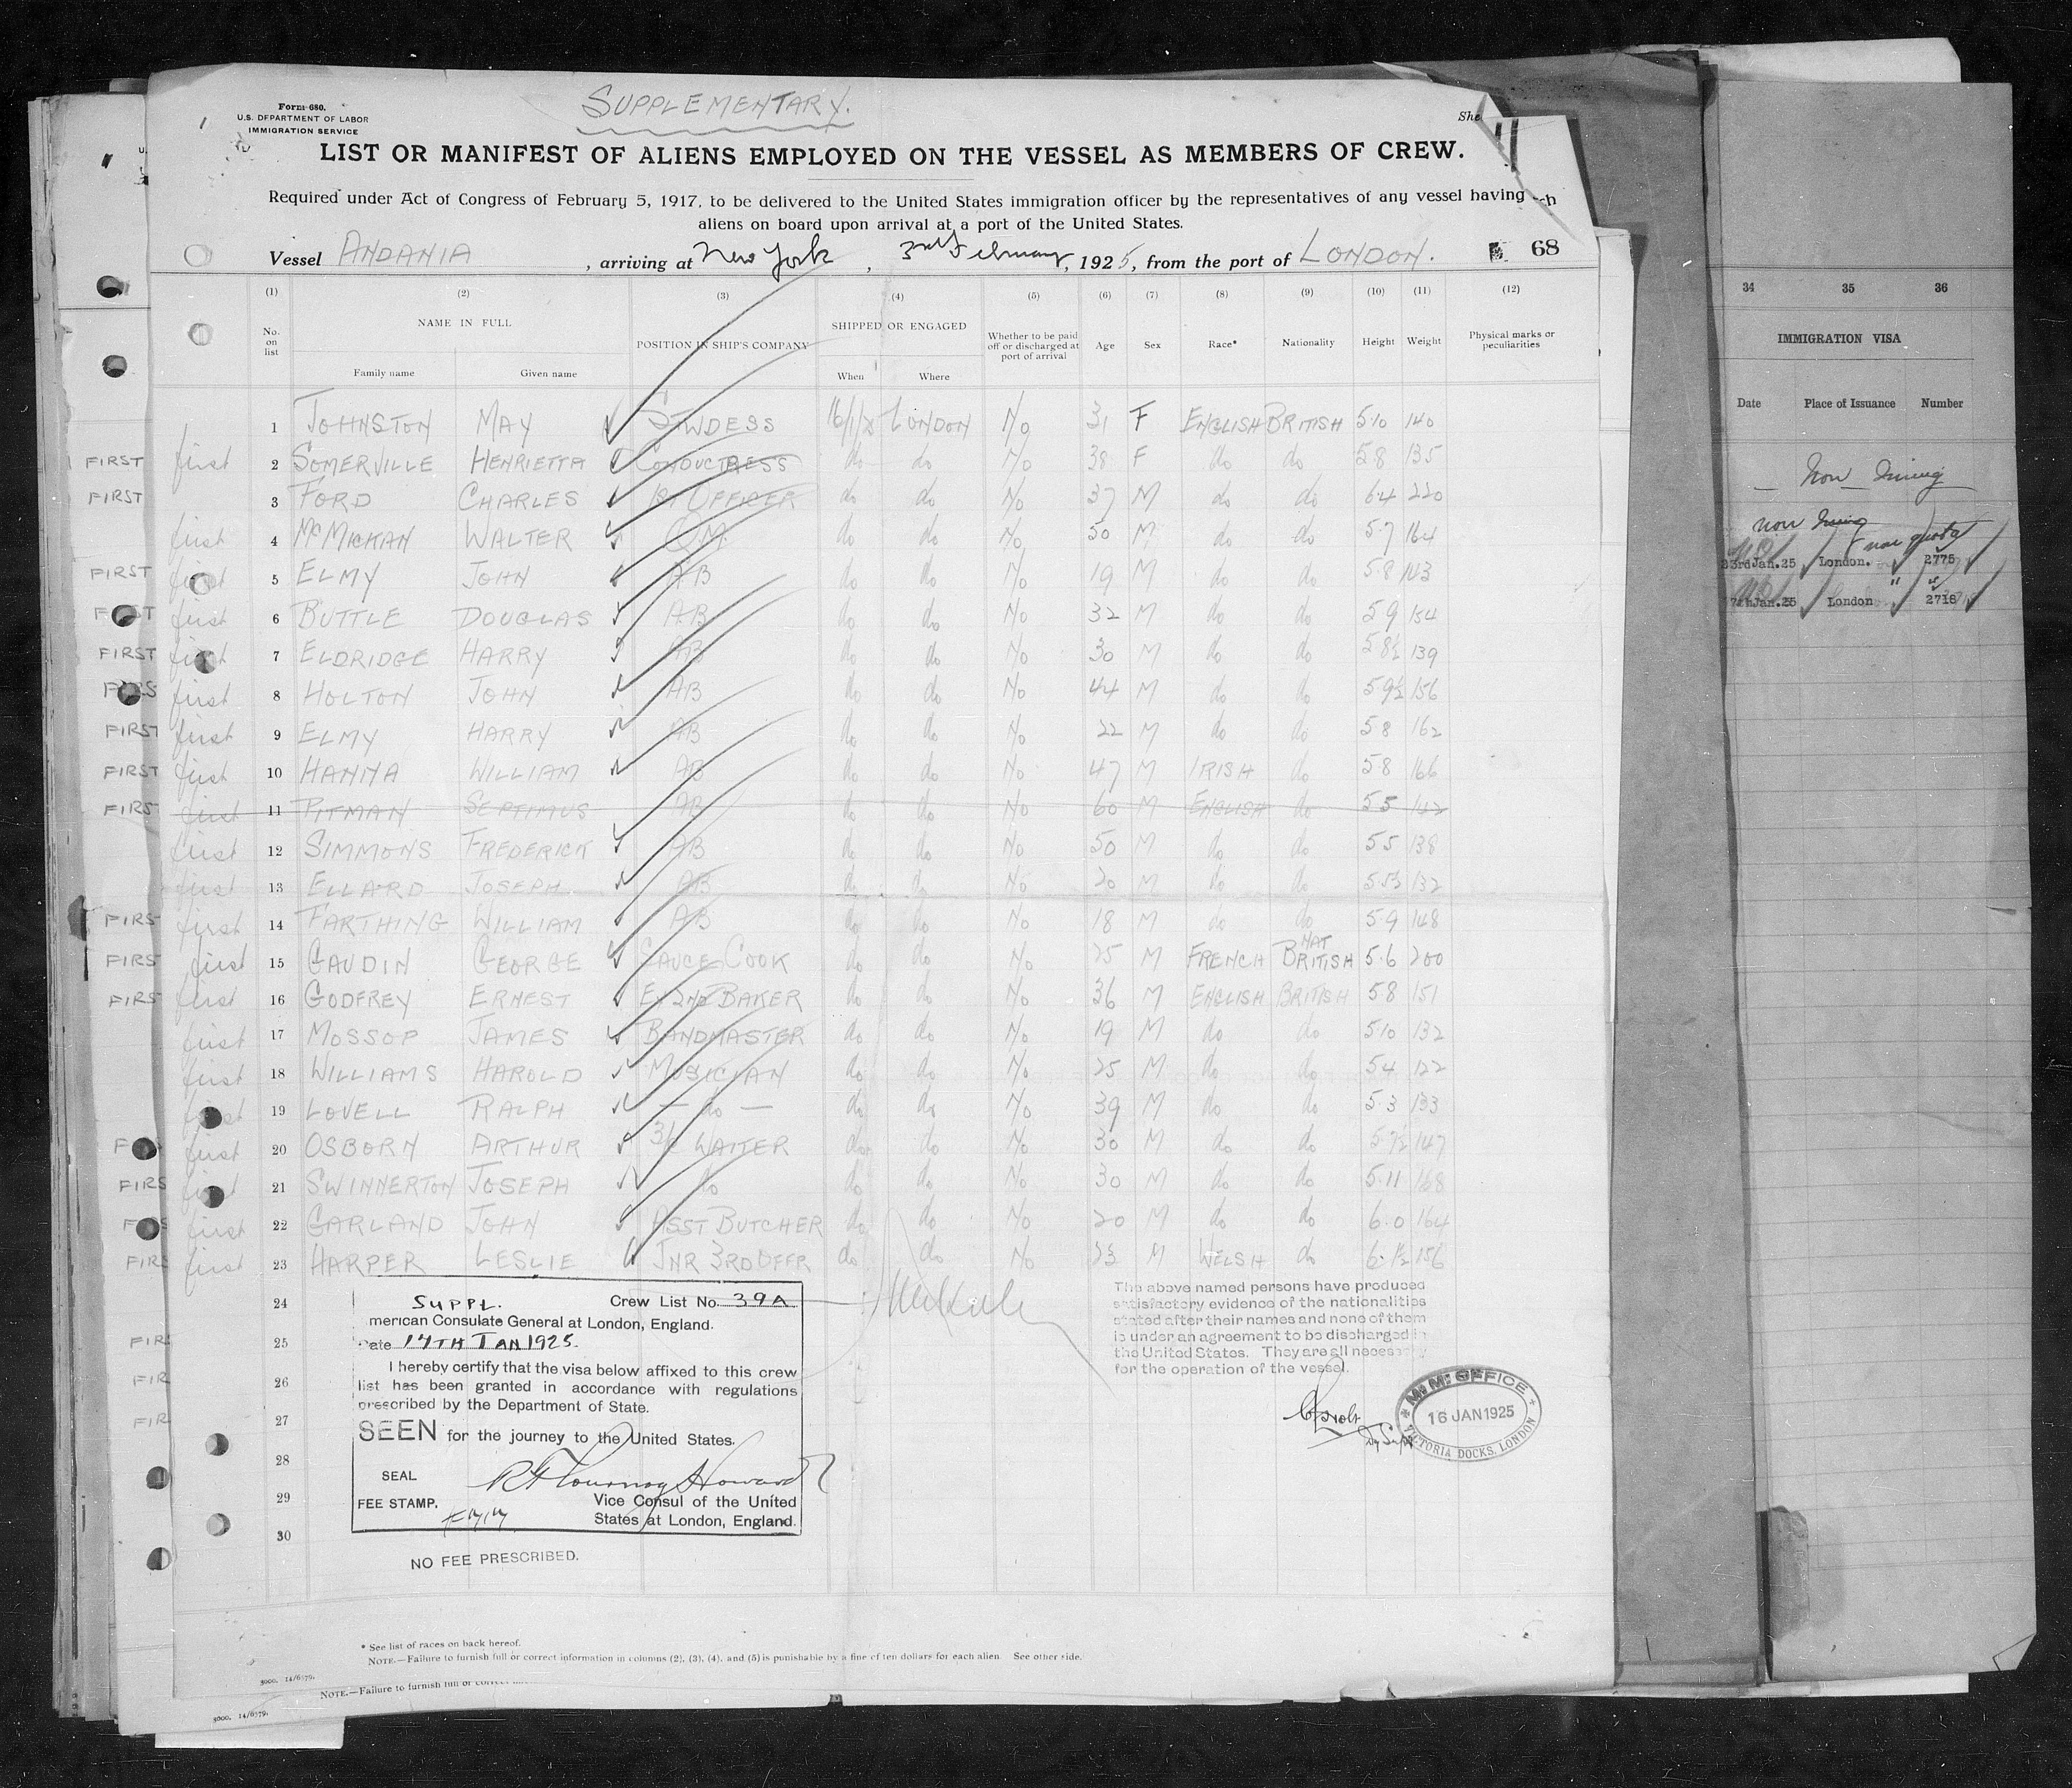 SUPPLEMENTARY.
Form 680.
U.S. DEPARTMENT OF LABOR
IMMIGRATION SERVICE
She
11
LIST OR MANIFEST OF ALIENS EMPLOYED ON THE VESSEL AS MEMBERS OF CREW.
Required under Act of Congress of February 5, 1917, to be delivered to the United States immigration officer by the representatives of any vessel having such
aliens on board upon arrival at a port of the United States.
Vessel ANDANIA, arriving at New York, 3rd February, 1925, from the port of LONDON. 68
(1) (2) (3) (4) (5) (6) (7) (8) (9) (10) (11) (12)
No. on list NAME IN FULL Family name Given name POSITION IN SHIP'S COMPANY SHIPPED OR ENGAGED When Where Whether to be paid off or discharged at port of arrival Age Sex Race* Nationality Height Weight Physical marks or peculiarities
1 JOHNSTON MAY STWDESS 16/1/25 LONDON No 31 F ENGLISH BRITISH 5·10 140
FIRST first 2 SOMERVILLE HENRIETTA CONDUCTRESS do do No 38 F do do 5 8 135
FIRST 3 FORD CHARLES 1st OFFICER do do No 37 M do do 6·4 220
first 4 McMICKAN WALTER Q.M. do do No 50 M do do 5·7 164
FIRST first 5 ELMY JOHN AB do do No 19 M do do 5·8 143
first 6 BUTTLE DOUGLAS A.B do do No 32 M do do 5 9 154
FIRST first 7 ELDRIDGE HARRY AB do do No 30 M do do 5 8½ 139
first 8 HOLTON JOHN AB do do No 44 M do do 5 9½ 156
FIRST first 9 ELMY HARRY AB do do No 22 M do do 5 8 162
FIRST first 10 HANNA WILLIAM AB do do No 47 M IRISH do 5 8 166
FIRST first 11 PITMAN SEPTIMUS AB do do No 60 M ENGLISH do 5 5 142
first 12 SIMMONS FREDERICK AB do do No 50 M do do 5 5 138
first 13 ELLARD JOSEPH AB do do No 20 M do do 132
FIRS first 14 FARTHING WILLIAM AB do do No 18 M do do 5 9 148
FIRS first 15 GAUDIN GEORGE SAUCE COOK do do No 25 M FRENCH NAT BRITISH 5·6 200
FIRS first 16 GODFREY ERNEST Ex 2nd BAKER do do No 36 M ENGLISH BRITISH 5 8 151
first 17 MOSSOP JAMES BANDMASTER do do No 19 M do do 5·10 132
first 18 WILLIAMS HAROLD MUSICIAN do do No 25 M do do 5 4 122
first 19 LOVELL RALPH — do — do do No 39 M do do 5·3 133
first 20 OSBORN ARTHUR 3/c WAITER do do No 30 M do do 5 7½ 147
FIRS first 21 SWINNERTON JOSEPH do do do No 30 M do do 5·11 168
first 22 GARLAND JOHN ASST BUTCHER do do No 20 M do do 6·0 164
FIR first 23 HARPER LESLIE JNR 3RD OFFR do do No 23 M WELSH do 6·1½ 156
24
FIR 25
FIR 26
FIR 27
28
29
30
SUPPL. Crew List No. 39A
merican Consulate General at London, England.
Date 17TH JAN 1925.
I hereby certify that the visa below affixed to this crew
list has been granted in accordance with regulations
prescribed by the Department of State.
SEEN for the journey to the United States.
SEAL
FEE STAMP.
Vice Consul of the United
States at London, England.
NO FEE PRESCRIBED.
The above named persons have produced
satisfactory evidence of the nationalities
stated after their names and none of them
is under an agreement to be discharged in
the United States. They are all necessary
for the operation of the vessel.
M. M. OFFICE
16 JAN 1925
VICTORIA DOCKS, LONDON
* See list of races on back hereof.
NOTE.—Failure to furnish full or correct information in columns (2), (3), (4), and (5) is punishable by a fine of ten dollars for each alien. See other side.
5000. 14/6579.
NOTE.—Failure to furnish full or correct
5000. 14/6579.
34 35 36
IMMIGRATION VISA
Date Place of Issuance Number
23rd Jan. 25 London. 2775
17th Jan. 25 London " 2718